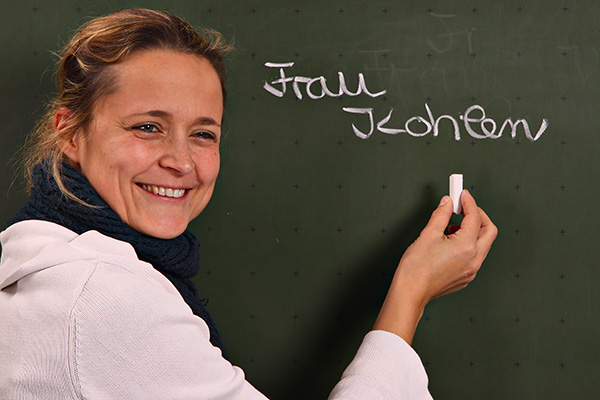 Frau
Kohlen